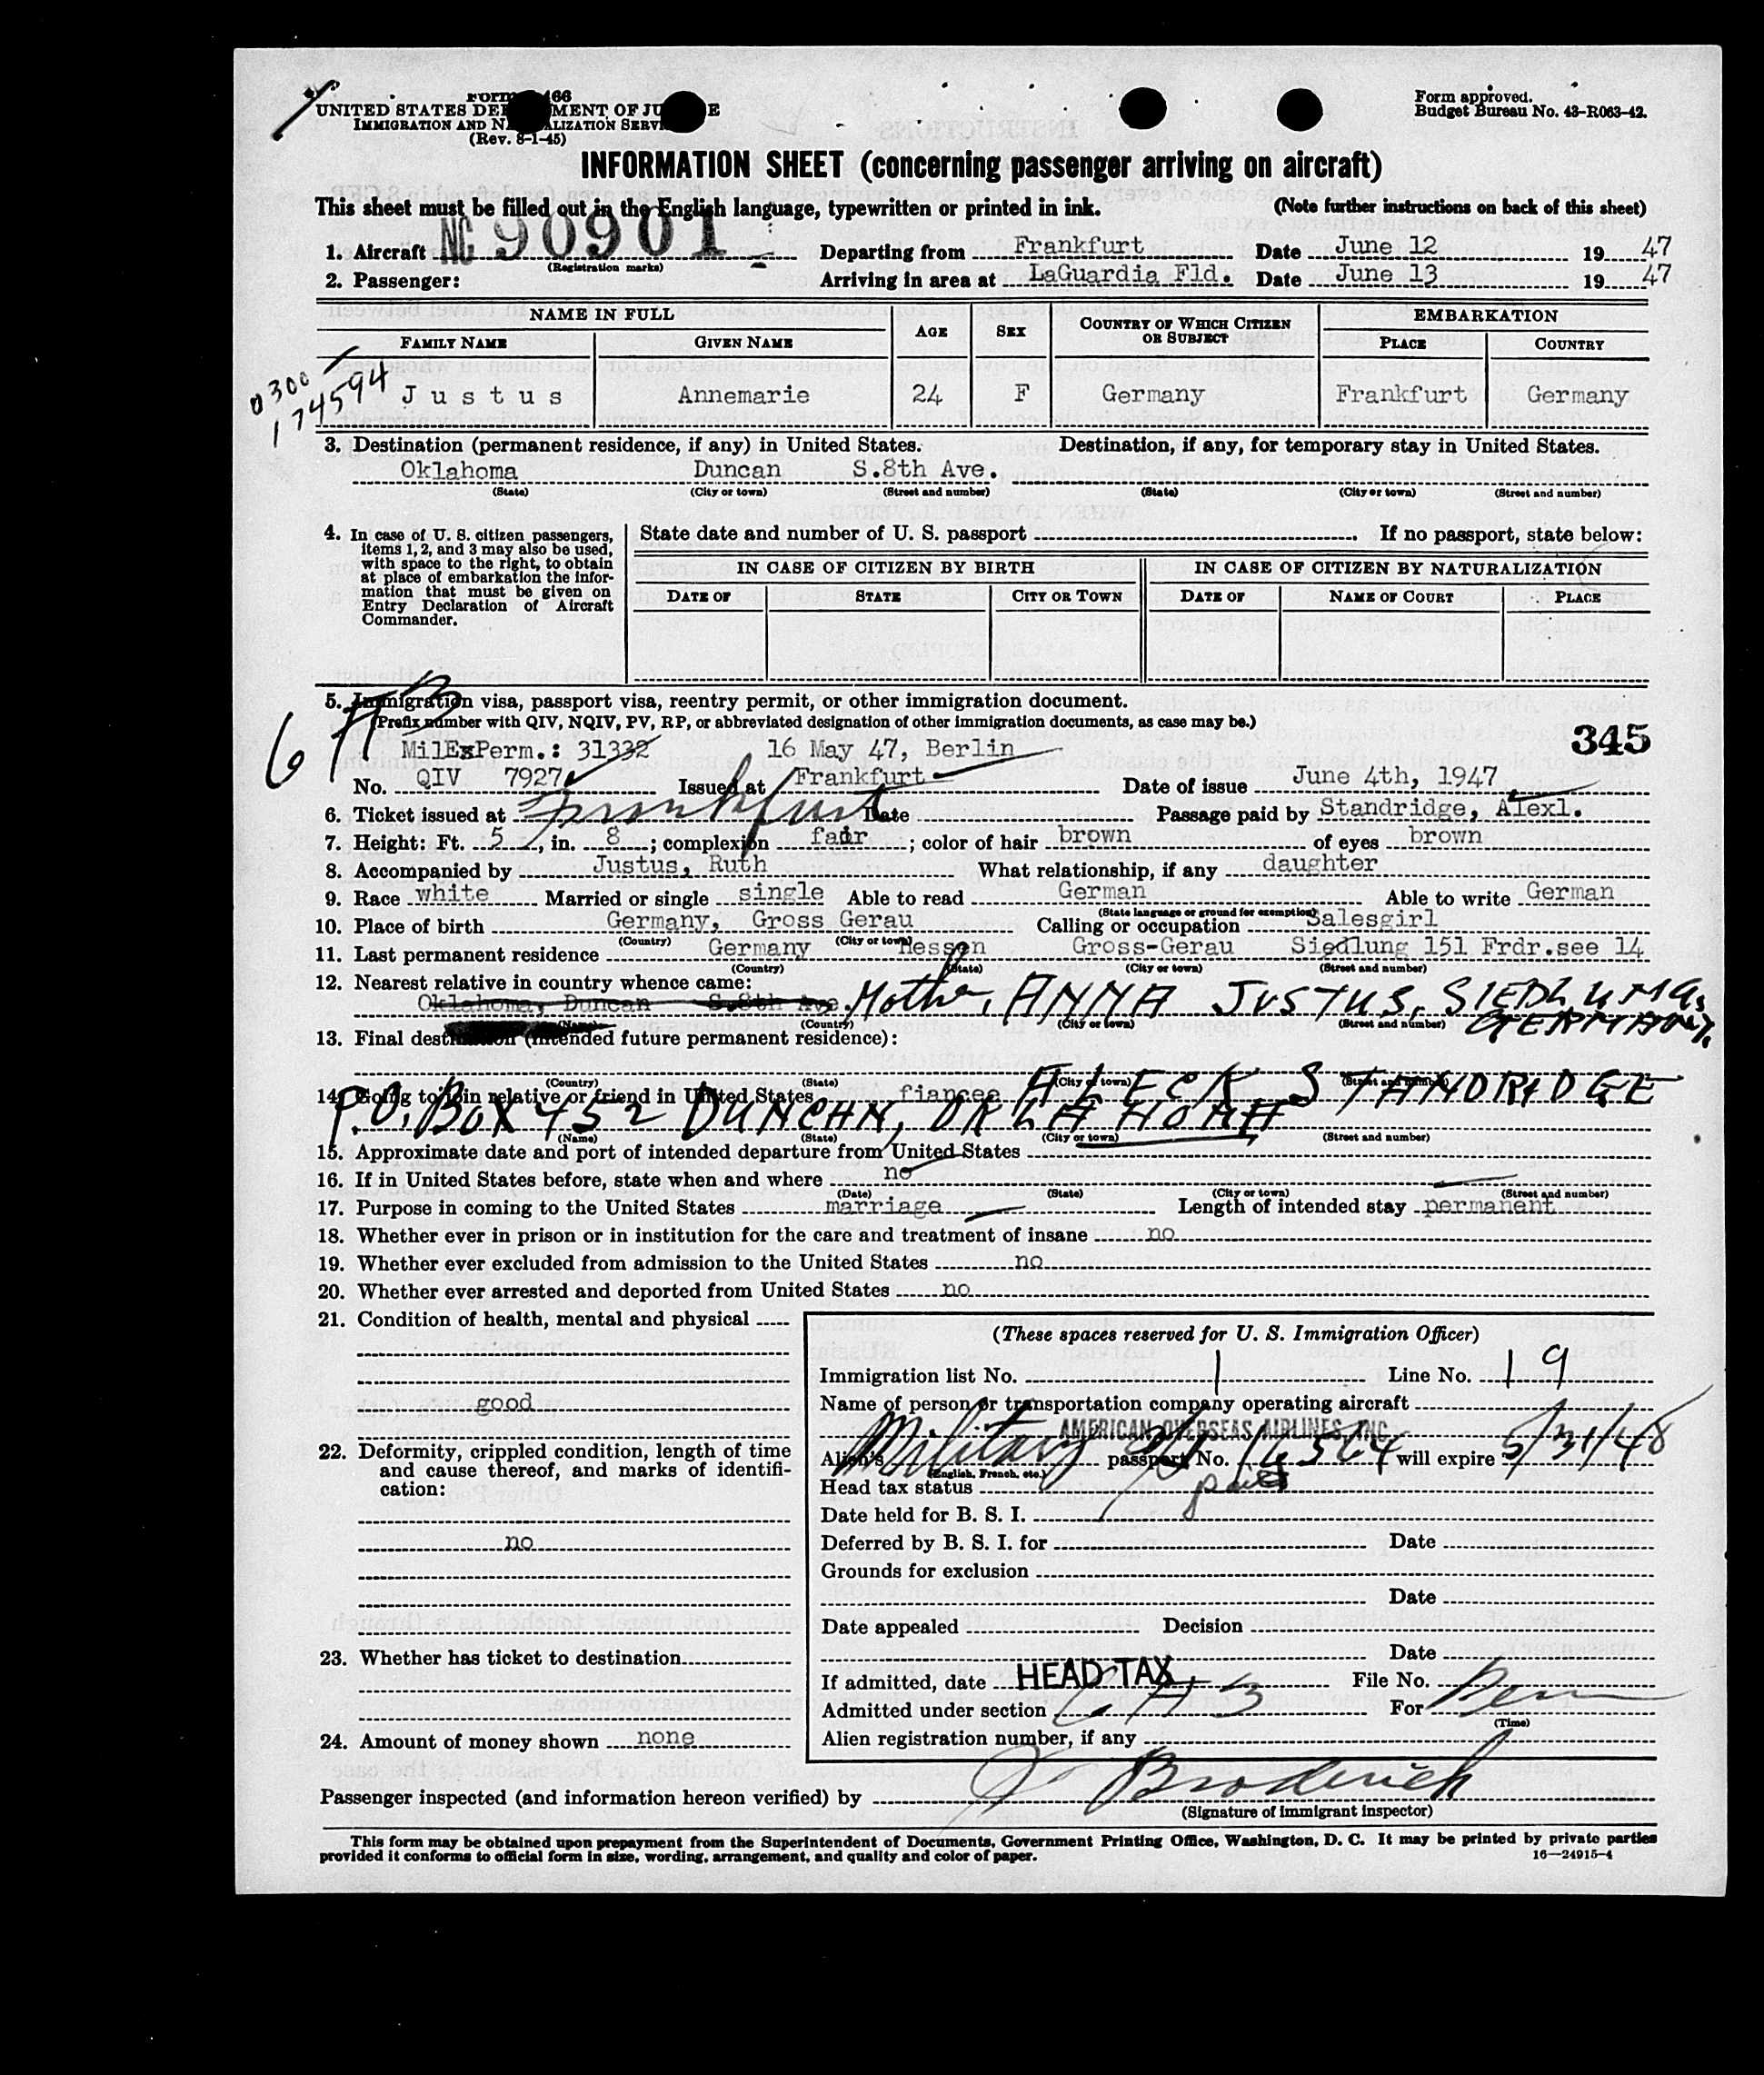 Form 466
UNITED STATES DEPARTMENT OF JUSTICE
IMMIGRATION AND NATURALIZATION SERVICE
(Rev. 8-1-45)
Form approved.
Budget Bureau No. 43-R063-42.
INFORMATION SHEET (concerning passenger arriving on aircraft)
This sheet must be filled out in the English language, typewritten or printed in ink. (Note further instructions on back of this sheet)
1. Aircraft NC 90901 Departing from Frankfurt Date June 12 19 47
(Registration marks)
2. Passenger: Arriving in area at LaGuardia Fld. Date June 13 19 47
NAME IN FULL AGE SEX COUNTRY OF WHICH CITIZEN OR SUBJECT EMBARKATION
FAMILY NAME GIVEN NAME PLACE COUNTRY
0300
174594
Justus Annemarie 24 F Germany Frankfurt Germany
3. Destination (permanent residence, if any) in United States. Destination, if any, for temporary stay in United States.
Oklahoma Duncan S.8th Ave.
(State) (City or town) (Street and number) (State) (City or town) (Street and number)
4. In case of U. S. citizen passengers, items 1, 2, and 3 may also be used, with space to the right, to obtain at place of embarkation the information that must be given on Entry Declaration of Aircraft Commander.
State date and number of U. S. passport . If no passport, state below:
IN CASE OF CITIZEN BY BIRTH IN CASE OF CITIZEN BY NATURALIZATION
DATE OF STATE CITY OR TOWN DATE OF NAME OF COURT PLACE
5. Immigration visa, passport visa, reentry permit, or other immigration document.
(Prefix number with QIV, NQIV, PV, RP, or abbreviated designation of other immigration documents, as case may be.)
345
MilExPerm.: 31332 16 May 47, Berlin
No. QIV 7927 Issued at Frankfurt Date of issue June 4th, 1947
6. Ticket issued at Frankfurt Date Passage paid by Standridge, Alexl.
7. Height: Ft. 5, in. 8; complexion fair; color of hair brown of eyes brown
8. Accompanied by Justus, Ruth What relationship, if any daughter
9. Race white Married or single single Able to read German Able to write German
(State language or ground for exemption)
10. Place of birth Germany, Gross Gerau Calling or occupation Salesgirl
(Country) (City or town)
11. Last permanent residence Germany Hessen Gross-Gerau Siedlung 151 Frdr.see 14
(Country) (State) (City or town) (Street and number)
12. Nearest relative in country whence came:
Oklahoma, Duncan S.8th Ave. Mother, ANNA JUSTUS, SIEDLUNG, GERMANY.
(Name) (Country) (City or town) (Street and number)
13. Final destination (intended future permanent residence):
(Country) (State) (City or town) (Street and number)
14. Going to join relative or friend in United States fiancee ALECK STANDRIDGE
P.O. BOX 452 DUNCAN, OKLAHOMA
(Name) (State) (City or town) (Street and number)
15. Approximate date and port of intended departure from United States
16. If in United States before, state when and where no
(Date) (State) (City or town) (Street and number)
17. Purpose in coming to the United States marriage Length of intended stay permanent
18. Whether ever in prison or in institution for the care and treatment of insane no
19. Whether ever excluded from admission to the United States no
20. Whether ever arrested and deported from United States no
21. Condition of health, mental and physical
good
22. Deformity, crippled condition, length of time and cause thereof, and marks of identification:
no
23. Whether has ticket to destination
24. Amount of money shown none
(These spaces reserved for U. S. Immigration Officer)
Immigration list No. 1 Line No. 19
Name of person or transportation company operating aircraft
AMERICAN OVERSEAS AIRLINES, INC.
Alien's Military passport No. will expire 5/31/48
(English, French, etc.)
Head tax status paid
Date held for B. S. I.
Deferred by B. S. I. for Date
Grounds for exclusion
Date
Date appealed Decision
Date
If admitted, date HEAD TAX File No.
Admitted under section 6 A 3 For Perm
(Time)
Alien registration number, if any
Passenger inspected (and information hereon verified) by J Broderick
(Signature of immigrant inspector)
This form may be obtained upon prepayment from the Superintendent of Documents, Government Printing Office, Washington, D. C. It may be printed by private parties
provided it conforms to official form in size, wording, arrangement, and quality and color of paper. 16—24915-4